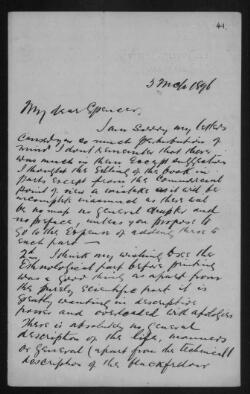 44.
3 Mch 1896
My dear Spencer,
I am sorry my letters
caused you so much perturbation of
mind I dont remember that there
was much in them except suggestions
I thought the selling of the book in
parts except from the commercial
point of view a mistake as it will be
incomplete inasmuch as there will
be no map no general chapter and
no preface, unless you propose to
go to the expense of adding these to
each part —
2nd I think my wishing to see the
Ethnological part before printing
was a good thing as apart from
the purely scientific part it is
greatly wanting in descriptive
power and overloaded with apologies
There is absolutely no general
description of the life, manners
or general (apart from the technical)
description of the blackfellow